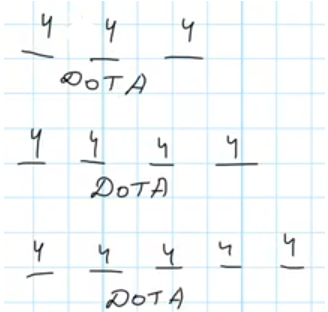 4 4 4
DOTA
4 4 4 4
DOTA
4 4 4 4 4
DOTA